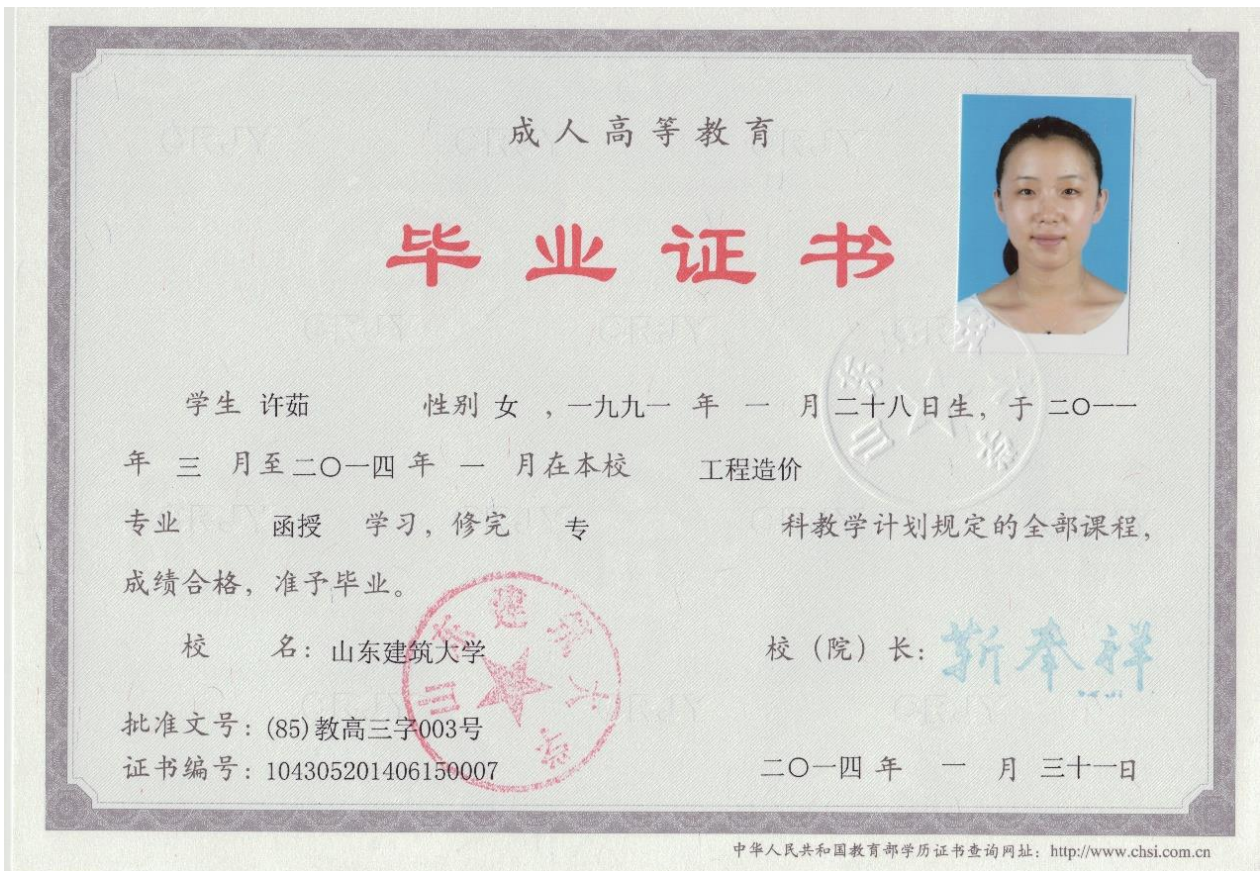 成人高等教育
毕业证书
学生 许茹 性别 女 ，一九九一 年 一 月 二十八日生，于 二〇一一
年 三 月至二〇一四 年 一 月在本校 工程造价
专业 函授 学习，修完 专 科教学计划规定的全部课程，
成绩合格，准予毕业。
校 名：山东建筑大学 校（院）长：靳奉祥
山东建筑大学
山东建筑大学
批准文号：(85)教高三字003号
证书编号：104305201406150007 二〇一四 年 一 月 三十一日
中华人民共和国教育部学历证书查询网址：http://www.chsi.com.cn